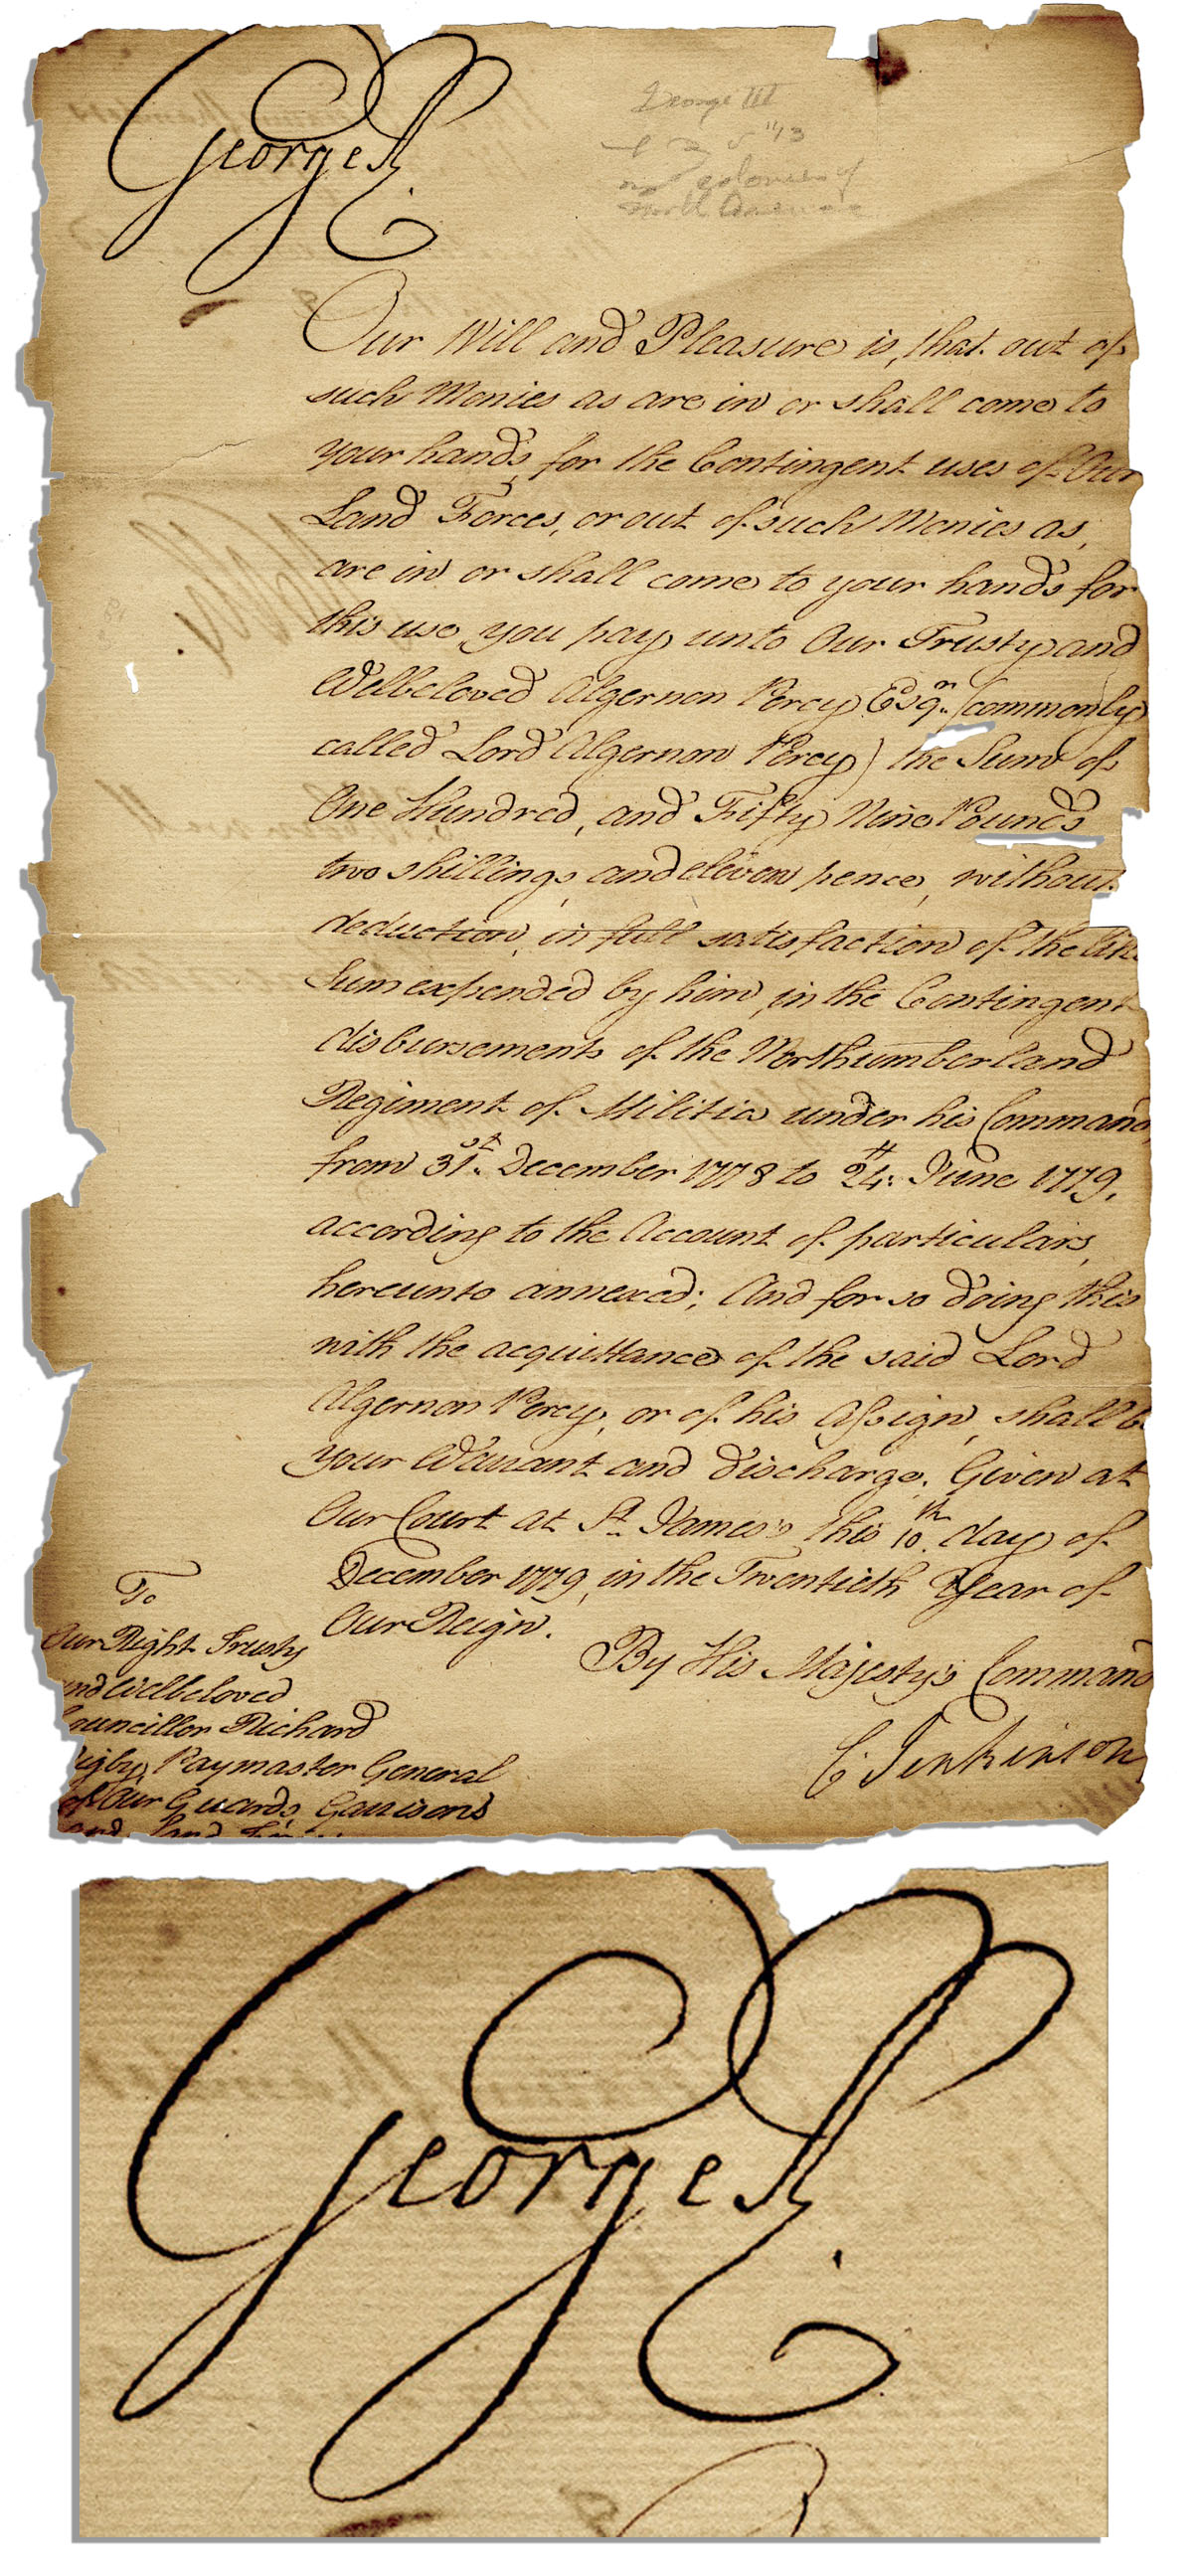 George R.
George III
colonies of
Our Will and Pleasure is, that out of
such Monies as are in or shall come to
your hands, for the Contingent uses of Our
Land Forces, or out of such Monies as,
are in or shall come to your hands for
this use you pay unto Our Trusty and
Welbeloved Algernon Percy Esqr. (commonly
called Lord Algernon Percy) the Sum of
One Hundred, and Fifty Nine Pounds
two shillings, and eleven pence, without
deduction, in full satisfaction of the like
Sum expended by him, in the Contingent
disbursements of the Northumberland
Regiment of Militia under his Command
from 31st. December 1778 to 24th. June 1779,
according to the Account of particulars,
hereunto annexed; And for so doing this
with the acquittance of the said Lord
Algernon Percy, or of his Assign, shall b
your Warrant and discharge. Given at
Our Court at St. James's this 10th. day of
December 1779, in the Twentieth Year of
Our Reign.
By His Majesty's Command
C. Jenkinson
To
Our Right Trusty
and Welbeloved
Councillor Richard
Rigby, Paymaster General
of Our Guards, Garrisons
and Land
George R.